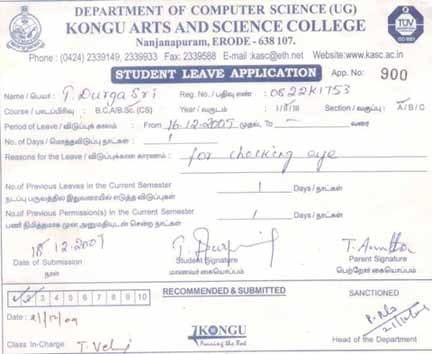 DEPARTMENT OF COMPUTER SCIENCE (UG)
KONGU ARTS AND SCIENCE COLLEGE
Nanjanapuram, ERODE - 638 107.
Phone : (0424) 2339149, 2339933 Fax: 2339588 E-mail :kasc@eth.net Website:www.kasc.ac.in
STUDENT LEAVE APPLICATION App. No: 900
Name / பெயர் : T. Durga Sri Reg. No./ பதிவு எண் : 0822K1753
Course / பாடப்பிரிவு : B.C.A/B.Sc. (CS) Year / வருடம் : I/II/III Section / வகுப்பு : A/B/C
Period of Leave / விடுப்புக் காலம் : From 16.12.2009 முதல், To - வரை
No. of Days / மொத்தவிடுப்பு நாட்கள் : 1
Reasons for the Leave / விடுப்புக்கான காரணம் : for checking eye
No.of Previous Leaves in the Current Semester 1 Days / நாட்கள்
நடப்பு பருவத்தில் இதுவரையில் எடுத்த விடுப்புகள்
No.of Previous Permission(s) in the Current Semester 1 Days / நாட்கள்
பணி நிமித்தமாக முன் அனுமதியுடன் சென்ற நாட்கள்
18.12.2009
Date of Submission Student Signature Parent Signature
நாள் மாணவர் கையொப்பம் பெற்றோர் கையொப்பம்
1 2 3 4 5 6 7 8 9 10 RECOMMENDED & SUBMITTED SANCTIONED
Date : 21/12/09
KONGU
Running the Red
Class In-Charge: Head of the Department